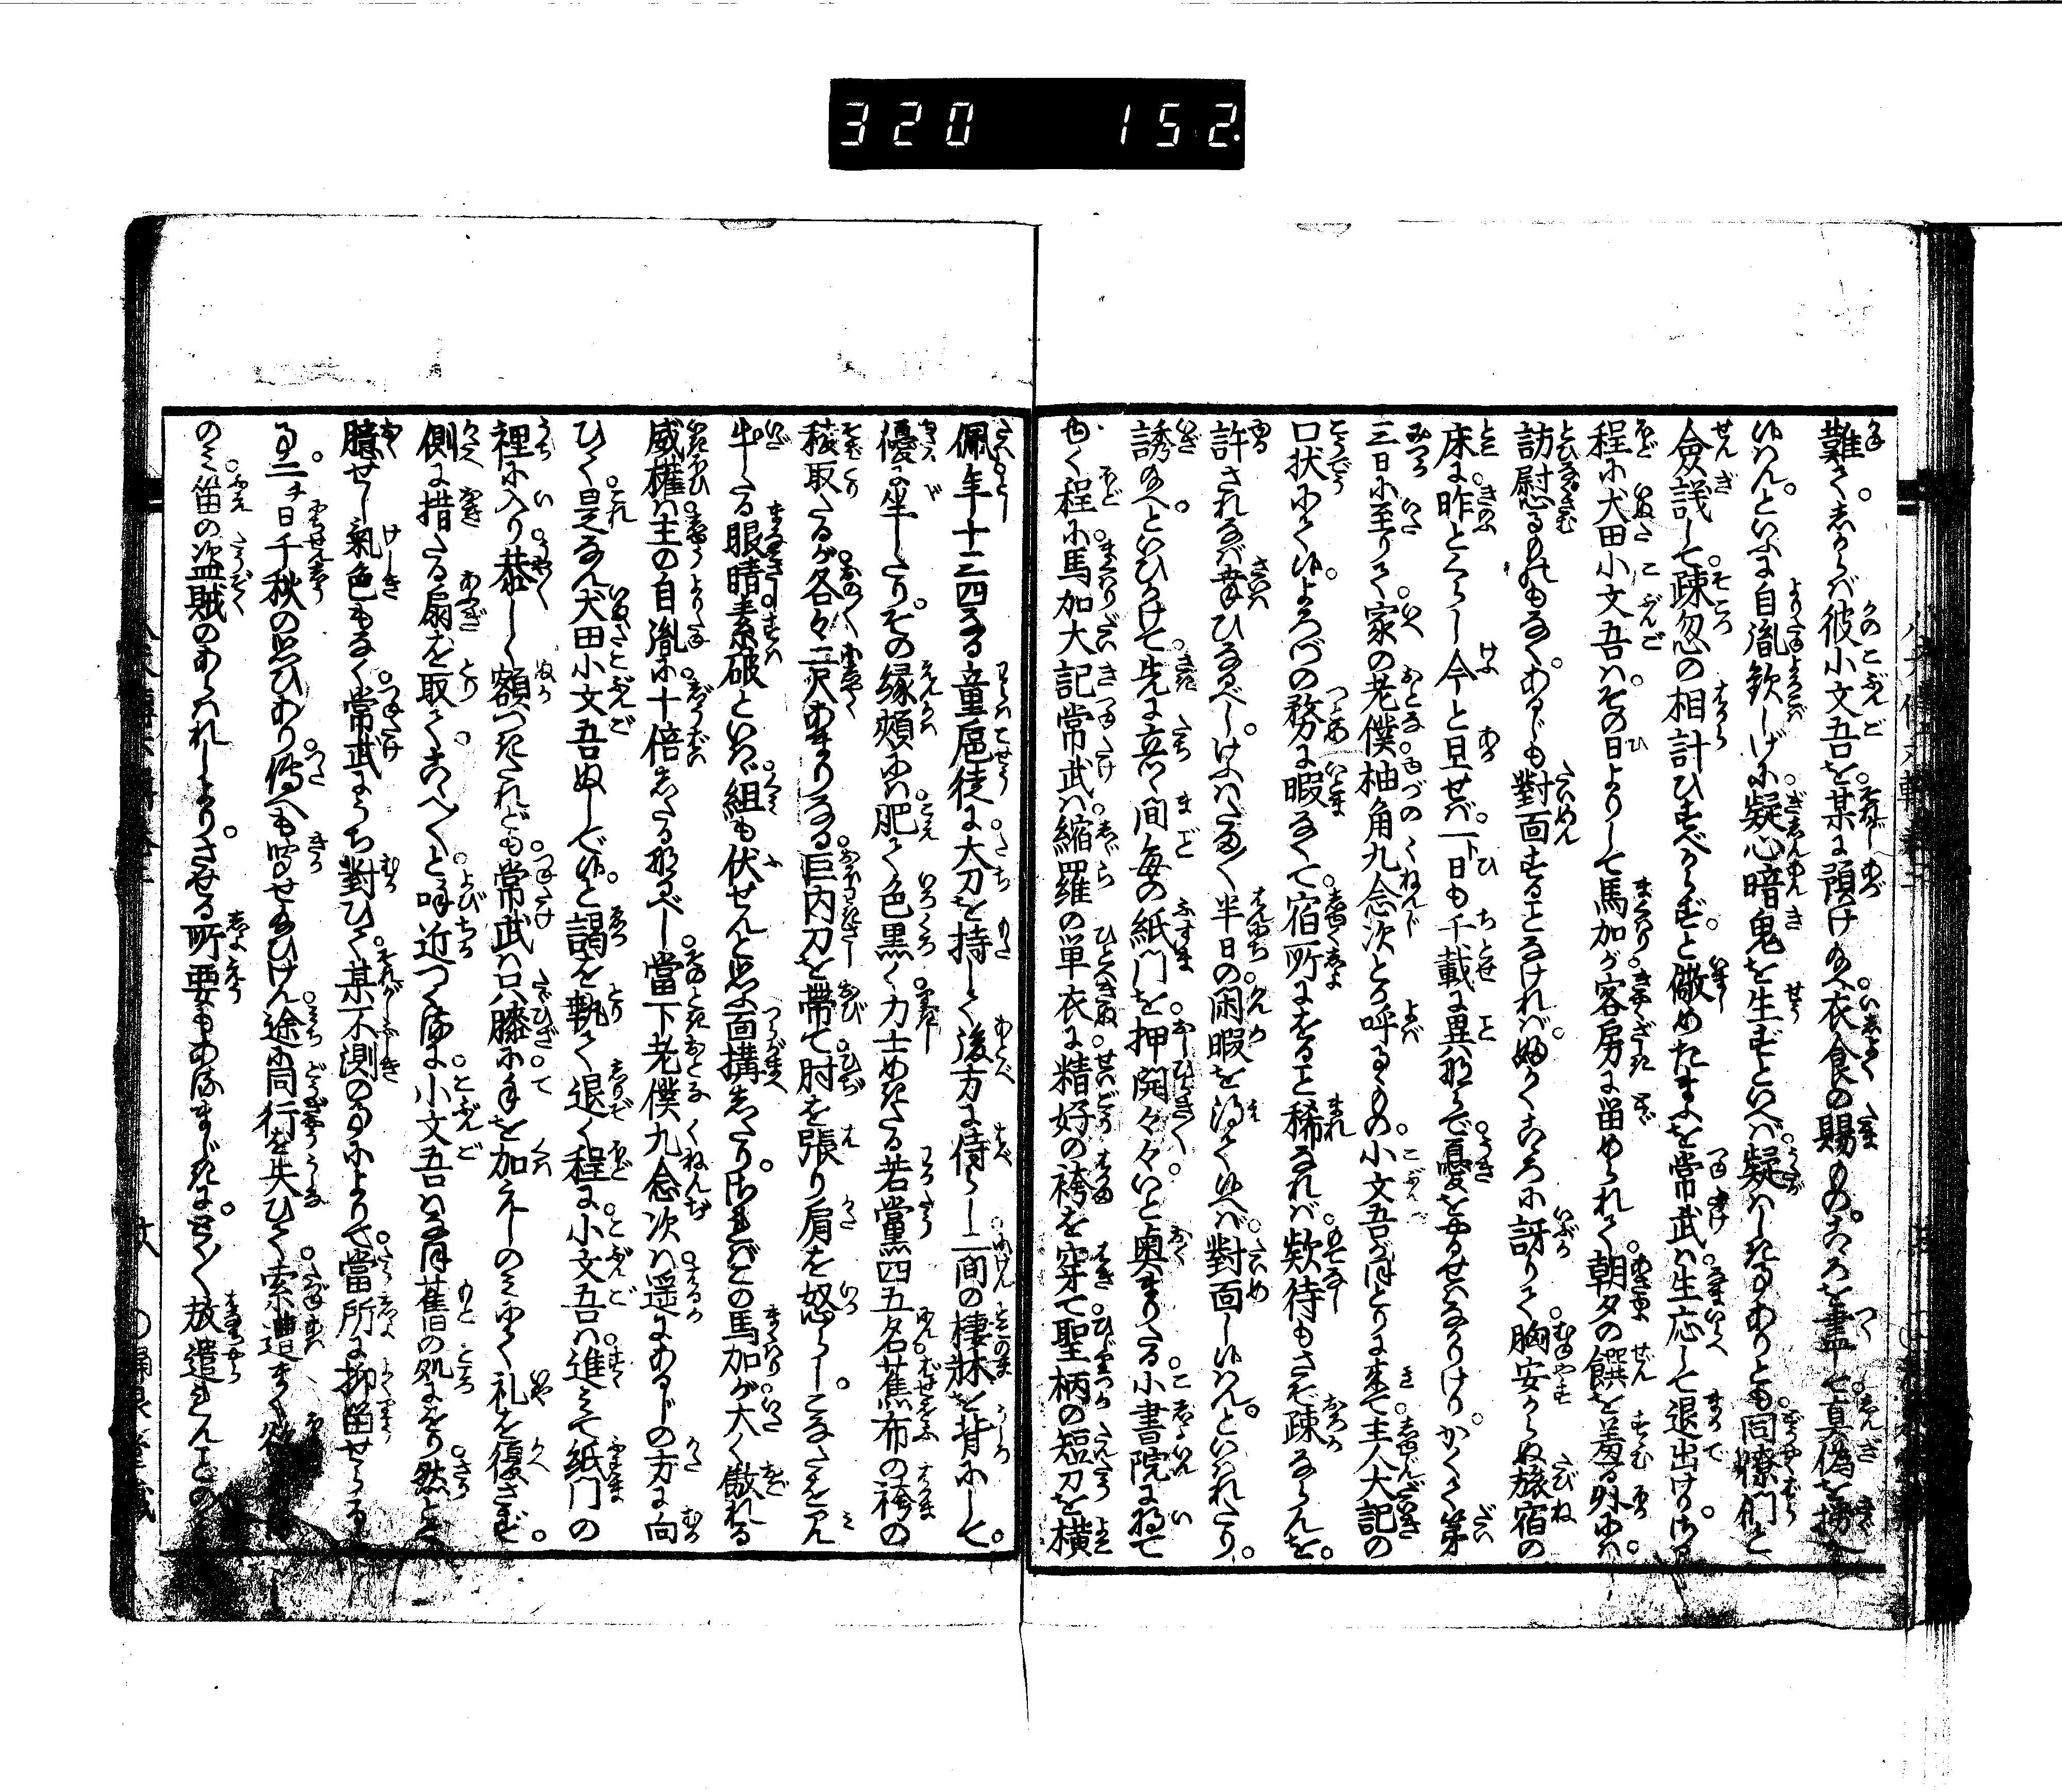 320 152.
難く。しからば彼小文吾を。某に預け給へ。衣食の賜もの。こゝろを盡せ。真偽を撈へ
候はんといふに自胤歓しげに。疑心暗鬼を生ずといへば。疑はしき事ありとも。同僚們と
僉議して。疎忽の相計ひすべからず。と儆めたまふを常武は。生応して退出けり。さる
程に犬田小文吾は。その日よりして馬加が。客房に留められて。朝夕の饌を羞る外には。
訪慰るものもなく。あるじも對面することなければ。ふかくこゝろに訝りて。胸安からぬ旅宿の
床に。昨とくらし今と旦せば。一日も千載に異ならで。憂をやるせはなかりけり。かくて第
三日に至りて。家の老僕柚角九念次とか呼るゝもの。小文吾がほとりに来て。主人大記の
口状にて候。よろづの務に暇なくて。宿所にをること稀なれば。欵待もさぞ疎ならんを。
許されなば幸ひなるべし。けふはたま〳〵半日の。閑暇を得て候へば。對面し候はん。といはれたり。
誘給へといひかけて。先に立て間毎の紙門を。押開々々いと奥まりたる。小書院に将て
ゆく程に。馬加大記常武は。縮羅の単衣に。精好の袴を穿て。聖柄の短刀を横
佩。年十三四なる童扈従に。大刀を持して後方に侍らし。二間の棲牀を背にして。
優に坐したり。その縁頬には。肥て色黒く。力士めきたる若黨四五名。蕉布の袴の
稜取たるが。各々二尺あまりなる。巨内刀を帯て。肘を張り肩を怒らし。こなたをみ
牛したる眼睛。素破といはゞ。組も伏せんと思ふ面構したり。さればこの馬加が。大く傲れる
威権は。主の自胤に。十倍したるなるべし。當下老僕九念次は。遥にあるじの方に向
ひて。是なん犬田小文吾ぬしで候。と謁を執て退く程に。小文吾は。進みて紙門の
裡に入り。恭しく額つきたれども。常武は只膝に手を加えしのみにて。礼を復さず。
側に措たる扇を取て。こなたへ〳〵と。呼近つくるに。小文吾はなほ舊の処にをり。然とて
臆せし氣色もなく。常武にうち對ひて。某不測の事によりて。當所に抑留せらるゝ
事。二チ日千秋の思ひあり。傳へも聞せ給ひけん。途に同行を失ひて。索遭まく欲
のみ。笛の盗賊のあらはれしより。させる所要もあるまじきに。とく〳〵放遣されんことの